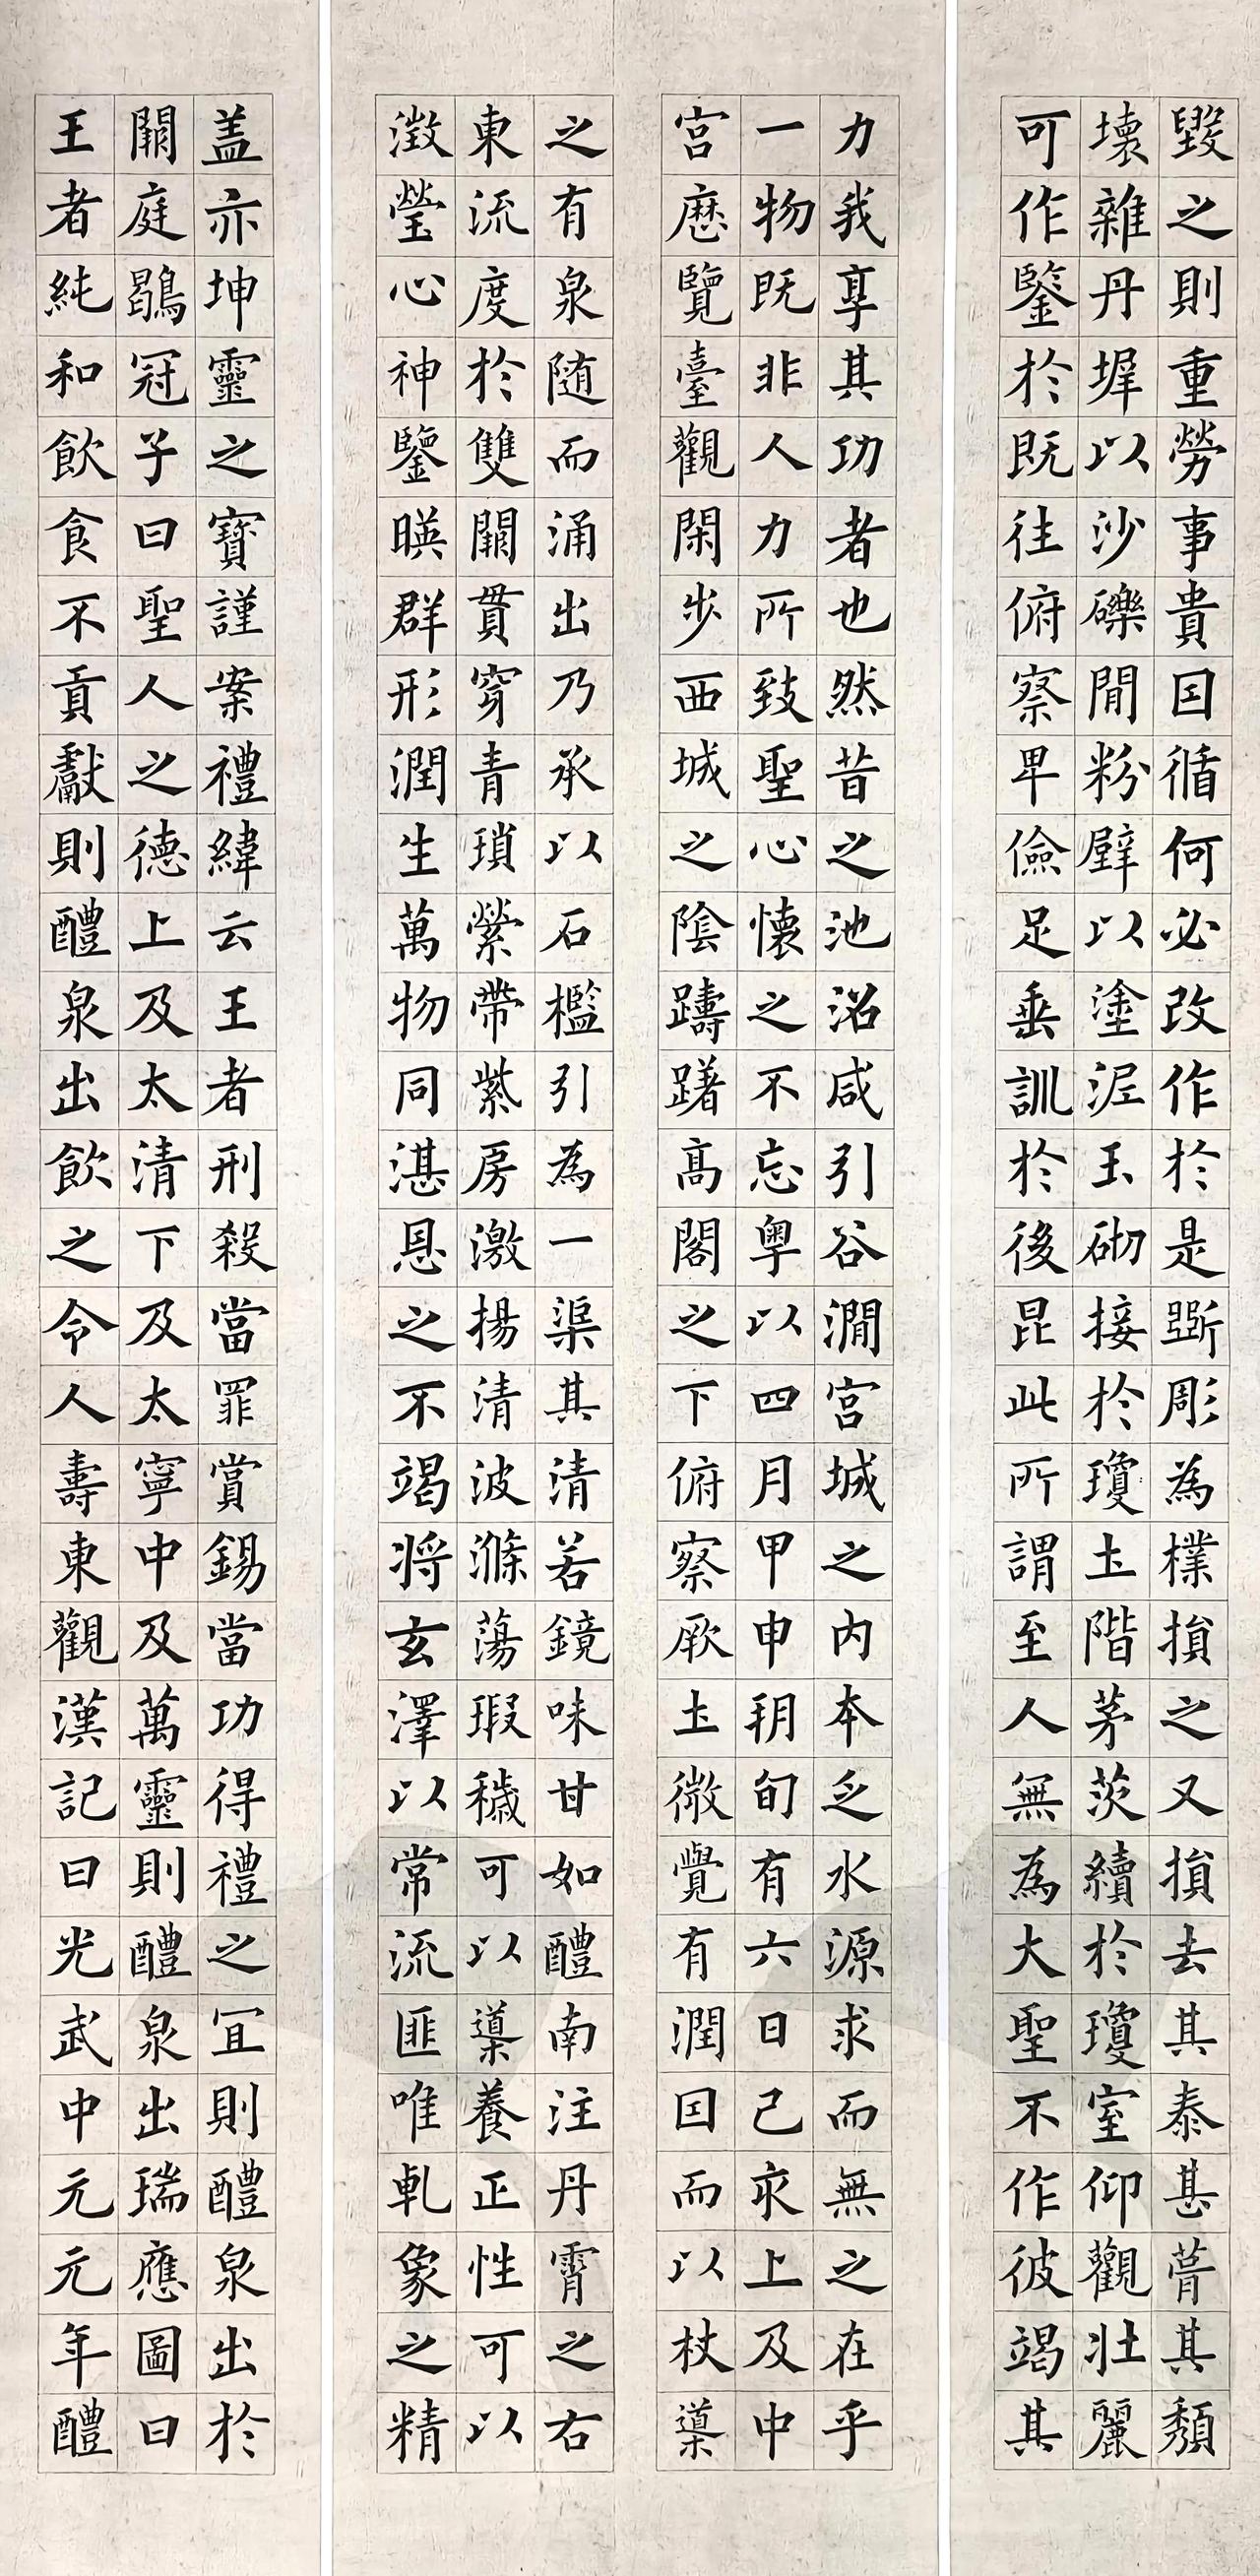 毀之則重勞事貴因循何必改作於是斲彫為樸損之又損去其泰甚葺其頹
壞雜丹墀以沙礫間粉壁以塗泥玉砌接於瓊土階茅茨續於瓊室仰觀壯麗
可作鑒於既往俯察卑儉足垂訓於後昆此所謂至人無為大聖不作彼竭其
力我享其功者也然昔之池沼咸引谷澗宮城之內本乏水源求而無之在乎
一物既非人力所致聖心懷之不忘粵以四月甲申朔旬有六日己亥上及中
宮歷覽臺觀閑步西城之陰躊躇高閣之下俯察厥土微覺有潤因而以杖導
之有泉随而涌出乃承以石檻引為一渠其清若鏡味甘如醴南注丹霄之右
東流度於雙闕貫穿青瑣縈帶紫房激揚清波滌蕩瑕穢可以導養正性可以
澂瑩心神鑒暎群形潤生萬物同湛恩之不竭将玄澤以常流匪唯乾象之精
盖亦坤靈之寶謹案禮緯云王者刑殺當罪賞錫當功得禮之宜則醴泉出於
闕庭鶡冠子曰聖人之德上及太清下及太寧中及萬靈則醴泉出瑞應圖曰
王者純和飲食不貢獻則醴泉出飲之令人壽東觀漢記曰光武中元元年醴